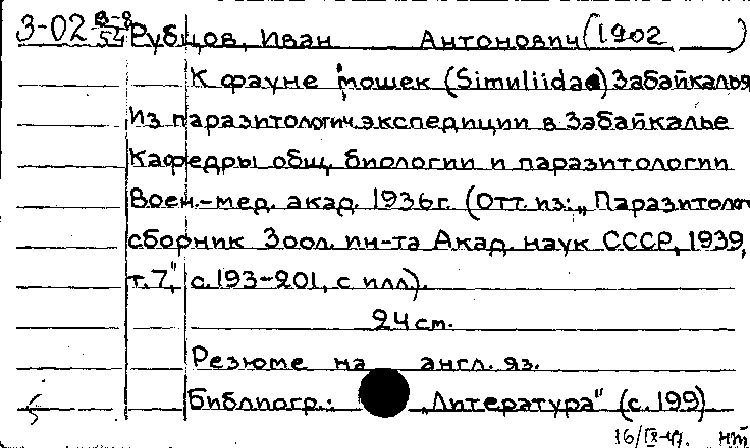 3-02 В-8/52 Рубцов, Иван Антонович (1902 )
К фауне мошек (Simuliidae) Забайкалья
Из паразитологич. экспедиции в Забайкалье
Кафедры общ. биологии и паразитологии
Воен.-мед. акад. 1936г. (Отт. из: „Паразитолог
сборник Зоол. ин-та Акад. наук СССР, 1939,
т. 7," с. 193-201, с илл).
24 cm.
Резюме на англ. яз.
Библиогр.: „Литература" (с. 199)
16/IX-47. нт